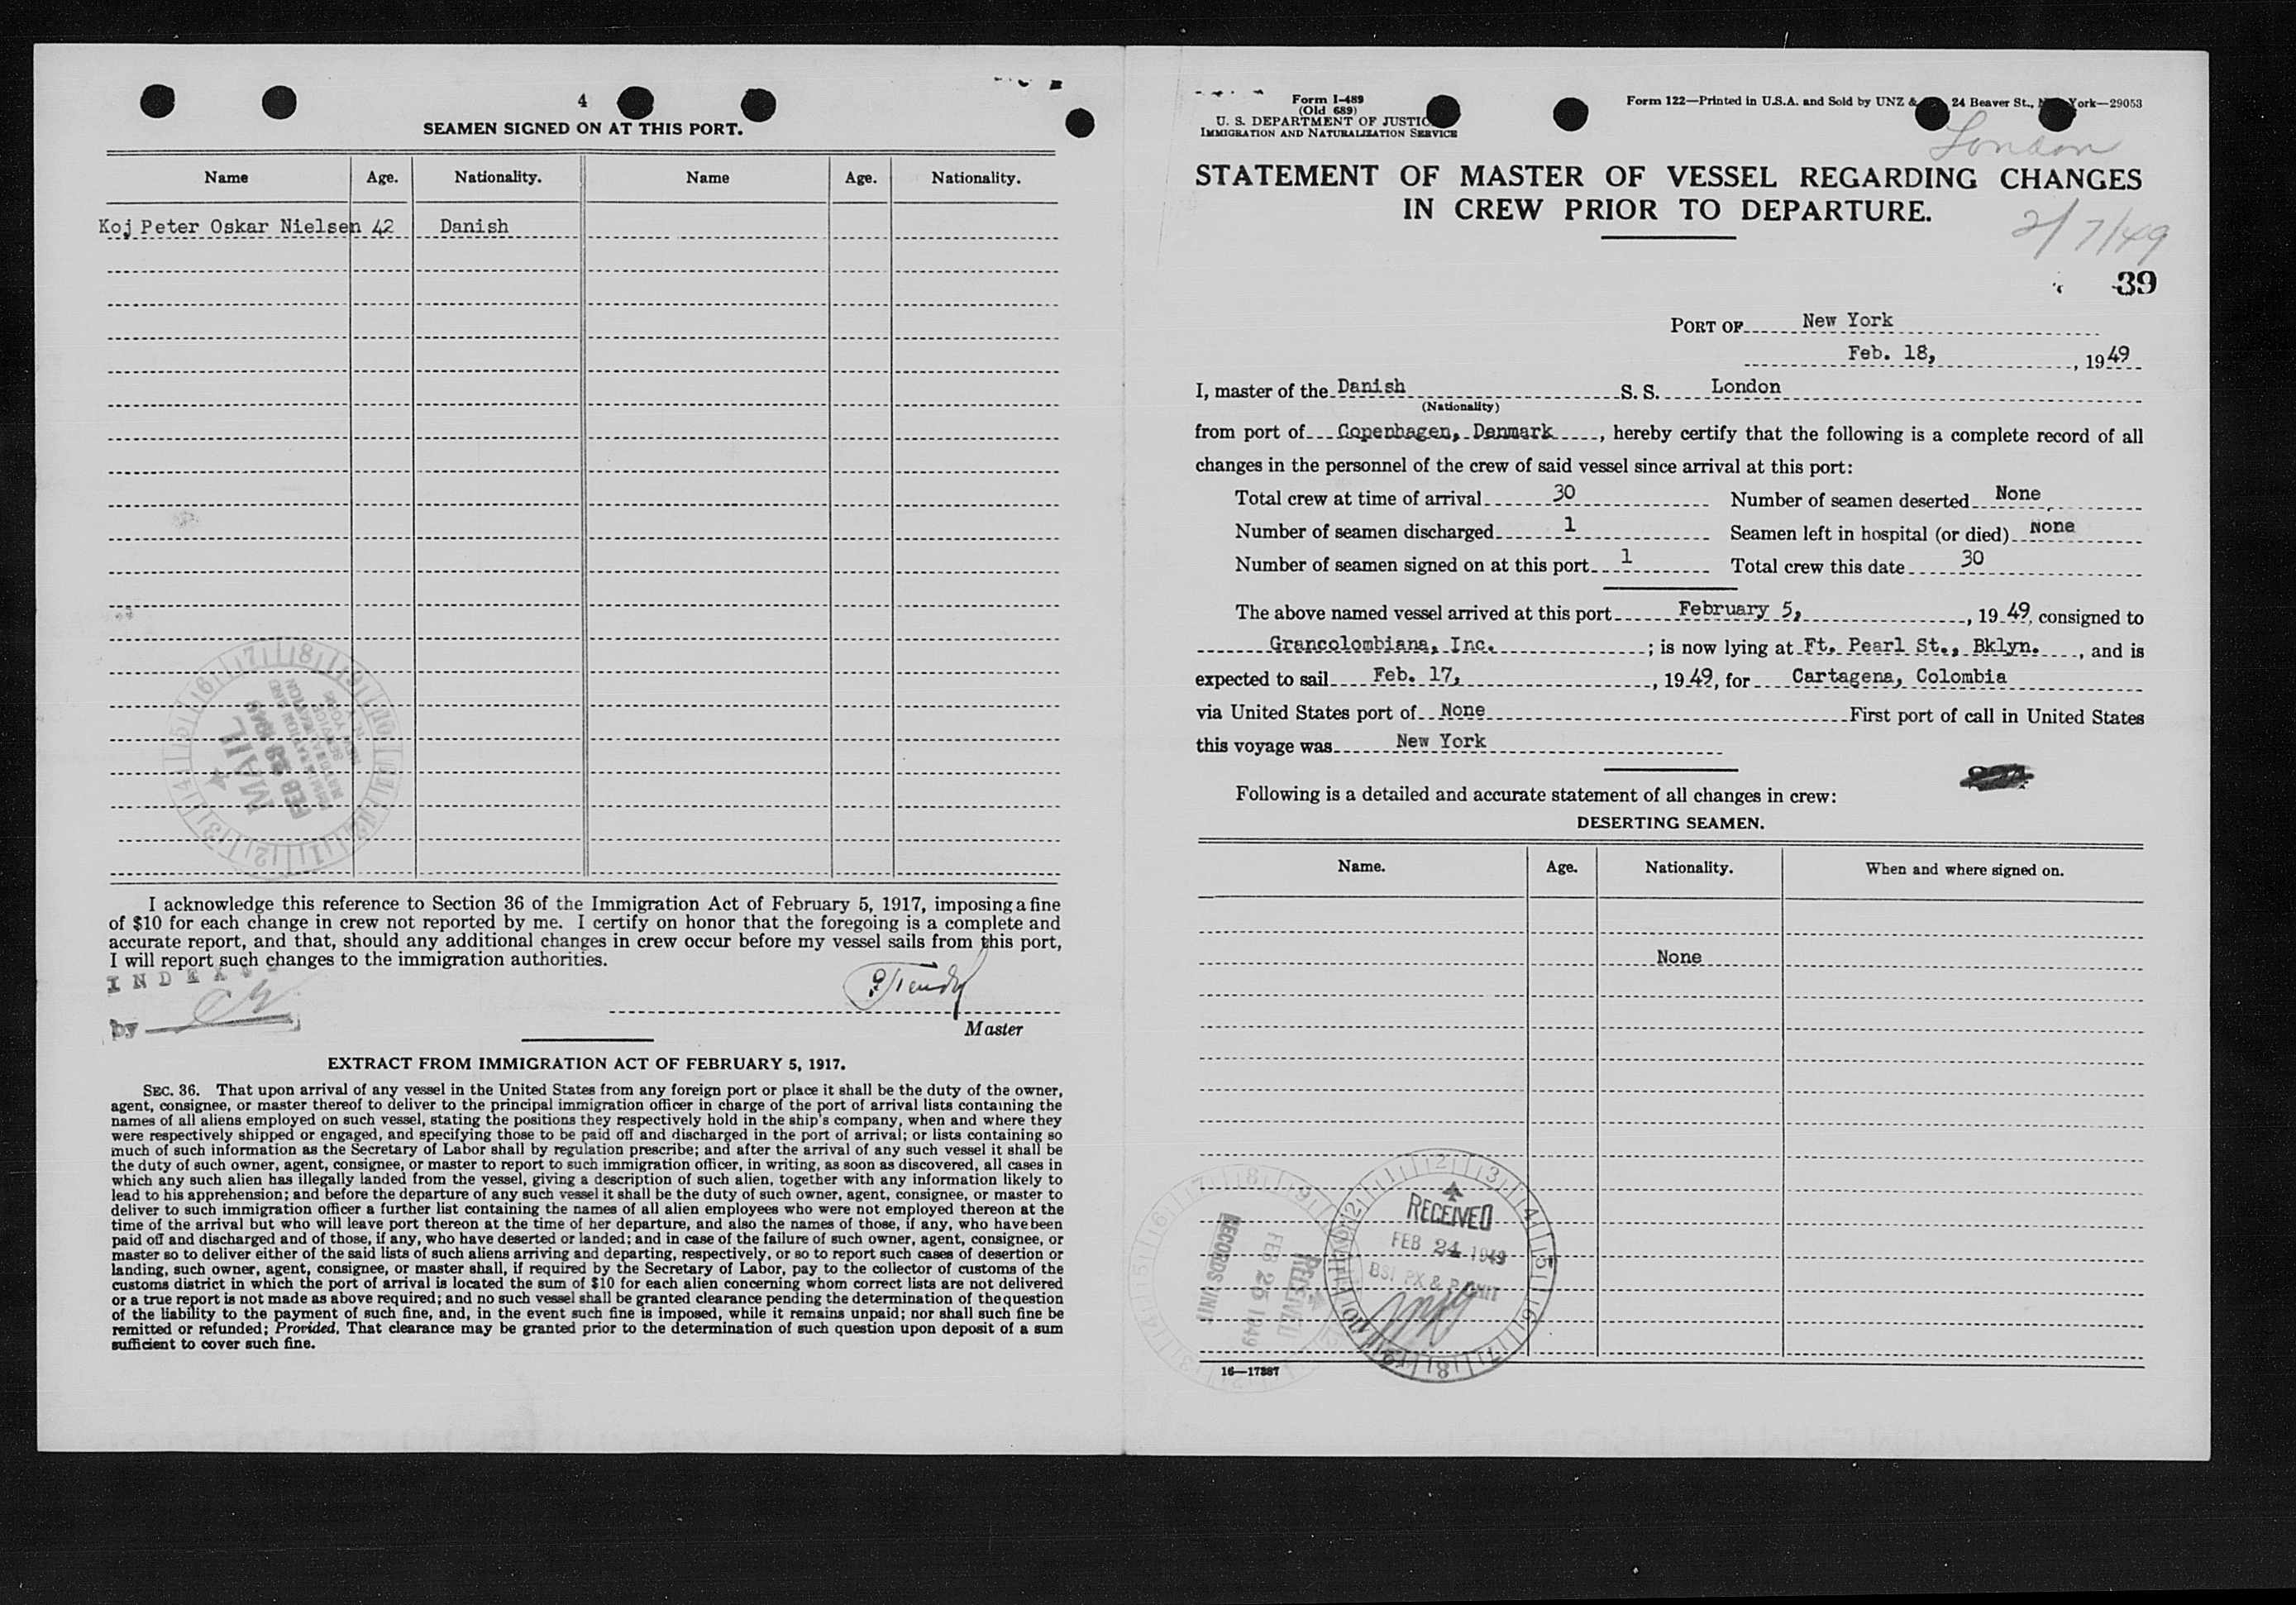 4
SEAMEN SIGNED ON AT THIS PORT.
Name Age. Nationality. Name Age. Nationality.
Koj Peter Oskar Nielsen 42 Danish
I acknowledge this reference to Section 36 of the Immigration Act of February 5, 1917, imposing a fine
of $10 for each change in crew not reported by me. I certify on honor that the foregoing is a complete and
accurate report, and that, should any additional changes in crew occur before my vessel sails from this port,
I will report such changes to the immigration authorities.
by
Master
EXTRACT FROM IMMIGRATION ACT OF FEBRUARY 5, 1917.
SEC. 36. That upon arrival of any vessel in the United States from any foreign port or place it shall be the duty of the owner,
agent, consignee, or master thereof to deliver to the principal immigration officer in charge of the port of arrival lists containing the
names of all aliens employed on such vessel, stating the positions they respectively hold in the ship's company, when and where they
were respectively shipped or engaged, and specifying those to be paid off and discharged in the port of arrival; or lists containing so
much of such information as the Secretary of Labor shall by regulation prescribe; and after the arrival of any such vessel it shall be
the duty of such owner, agent, consignee, or master to report to such immigration officer, in writing, as soon as discovered, all cases in
which any such alien has illegally landed from the vessel, giving a description of such alien, together with any information likely to
lead to his apprehension; and before the departure of any such vessel it shall be the duty of such owner, agent, consignee, or master to
deliver to such immigration officer a further list containing the names of all alien employees who were not employed thereon at the
time of the arrival but who will leave port thereon at the time of her departure, and also the names of those, if any, who have been
paid off and discharged and of those, if any, who have deserted or landed; and in case of the failure of such owner, agent, consignee, or
master so to deliver either of the said lists of such aliens arriving and departing, respectively, or so to report such cases of desertion or
landing, such owner, agent, consignee, or master shall, if required by the Secretary of Labor, pay to the collector of customs of the
customs district in which the port of arrival is located the sum of $10 for each alien concerning whom correct lists are not delivered
or a true report is not made as above required; and no such vessel shall be granted clearance pending the determination of the question
of the liability to the payment of such fine, and, in the event such fine is imposed, while it remains unpaid; nor shall such fine be
remitted or refunded; Provided, That clearance may be granted prior to the determination of such question upon deposit of a sum
sufficient to cover such fine.
MAIL
FEB
Form I-489
(Old 689)
U. S. DEPARTMENT OF JUSTIC
IMMIGRATION AND NATURALIZATION SERVICE
Form 122—Printed in U.S.A. and Sold by UNZ & 24 Beaver St., York—29053
London
STATEMENT OF MASTER OF VESSEL REGARDING CHANGES
IN CREW PRIOR TO DEPARTURE.
2/7/49
39
PORT OF New York
Feb. 18, , 1949
I, master of the Danish S. S. London
(Nationality)
from port of Copenhagen, Denmark , hereby certify that the following is a complete record of all
changes in the personnel of the crew of said vessel since arrival at this port:
Total crew at time of arrival 30 Number of seamen deserted None
Number of seamen discharged 1 Seamen left in hospital (or died) None
Number of seamen signed on at this port 1 Total crew this date 30
The above named vessel arrived at this port February 5, , 1949, consigned to
Grancolombiana, Inc. ; is now lying at Ft. Pearl St., Bklyn. , and is
expected to sail Feb. 17, , 1949, for Cartagena, Colombia
via United States port of None First port of call in United States
this voyage was New York
Following is a detailed and accurate statement of all changes in crew:
DESERTING SEAMEN.
Name. Age. Nationality. When and where signed on.
None
RECEIVED
FEB 24 1949
RECORDS UNIT
FEB 25 1949
RECEIVED
16—17887